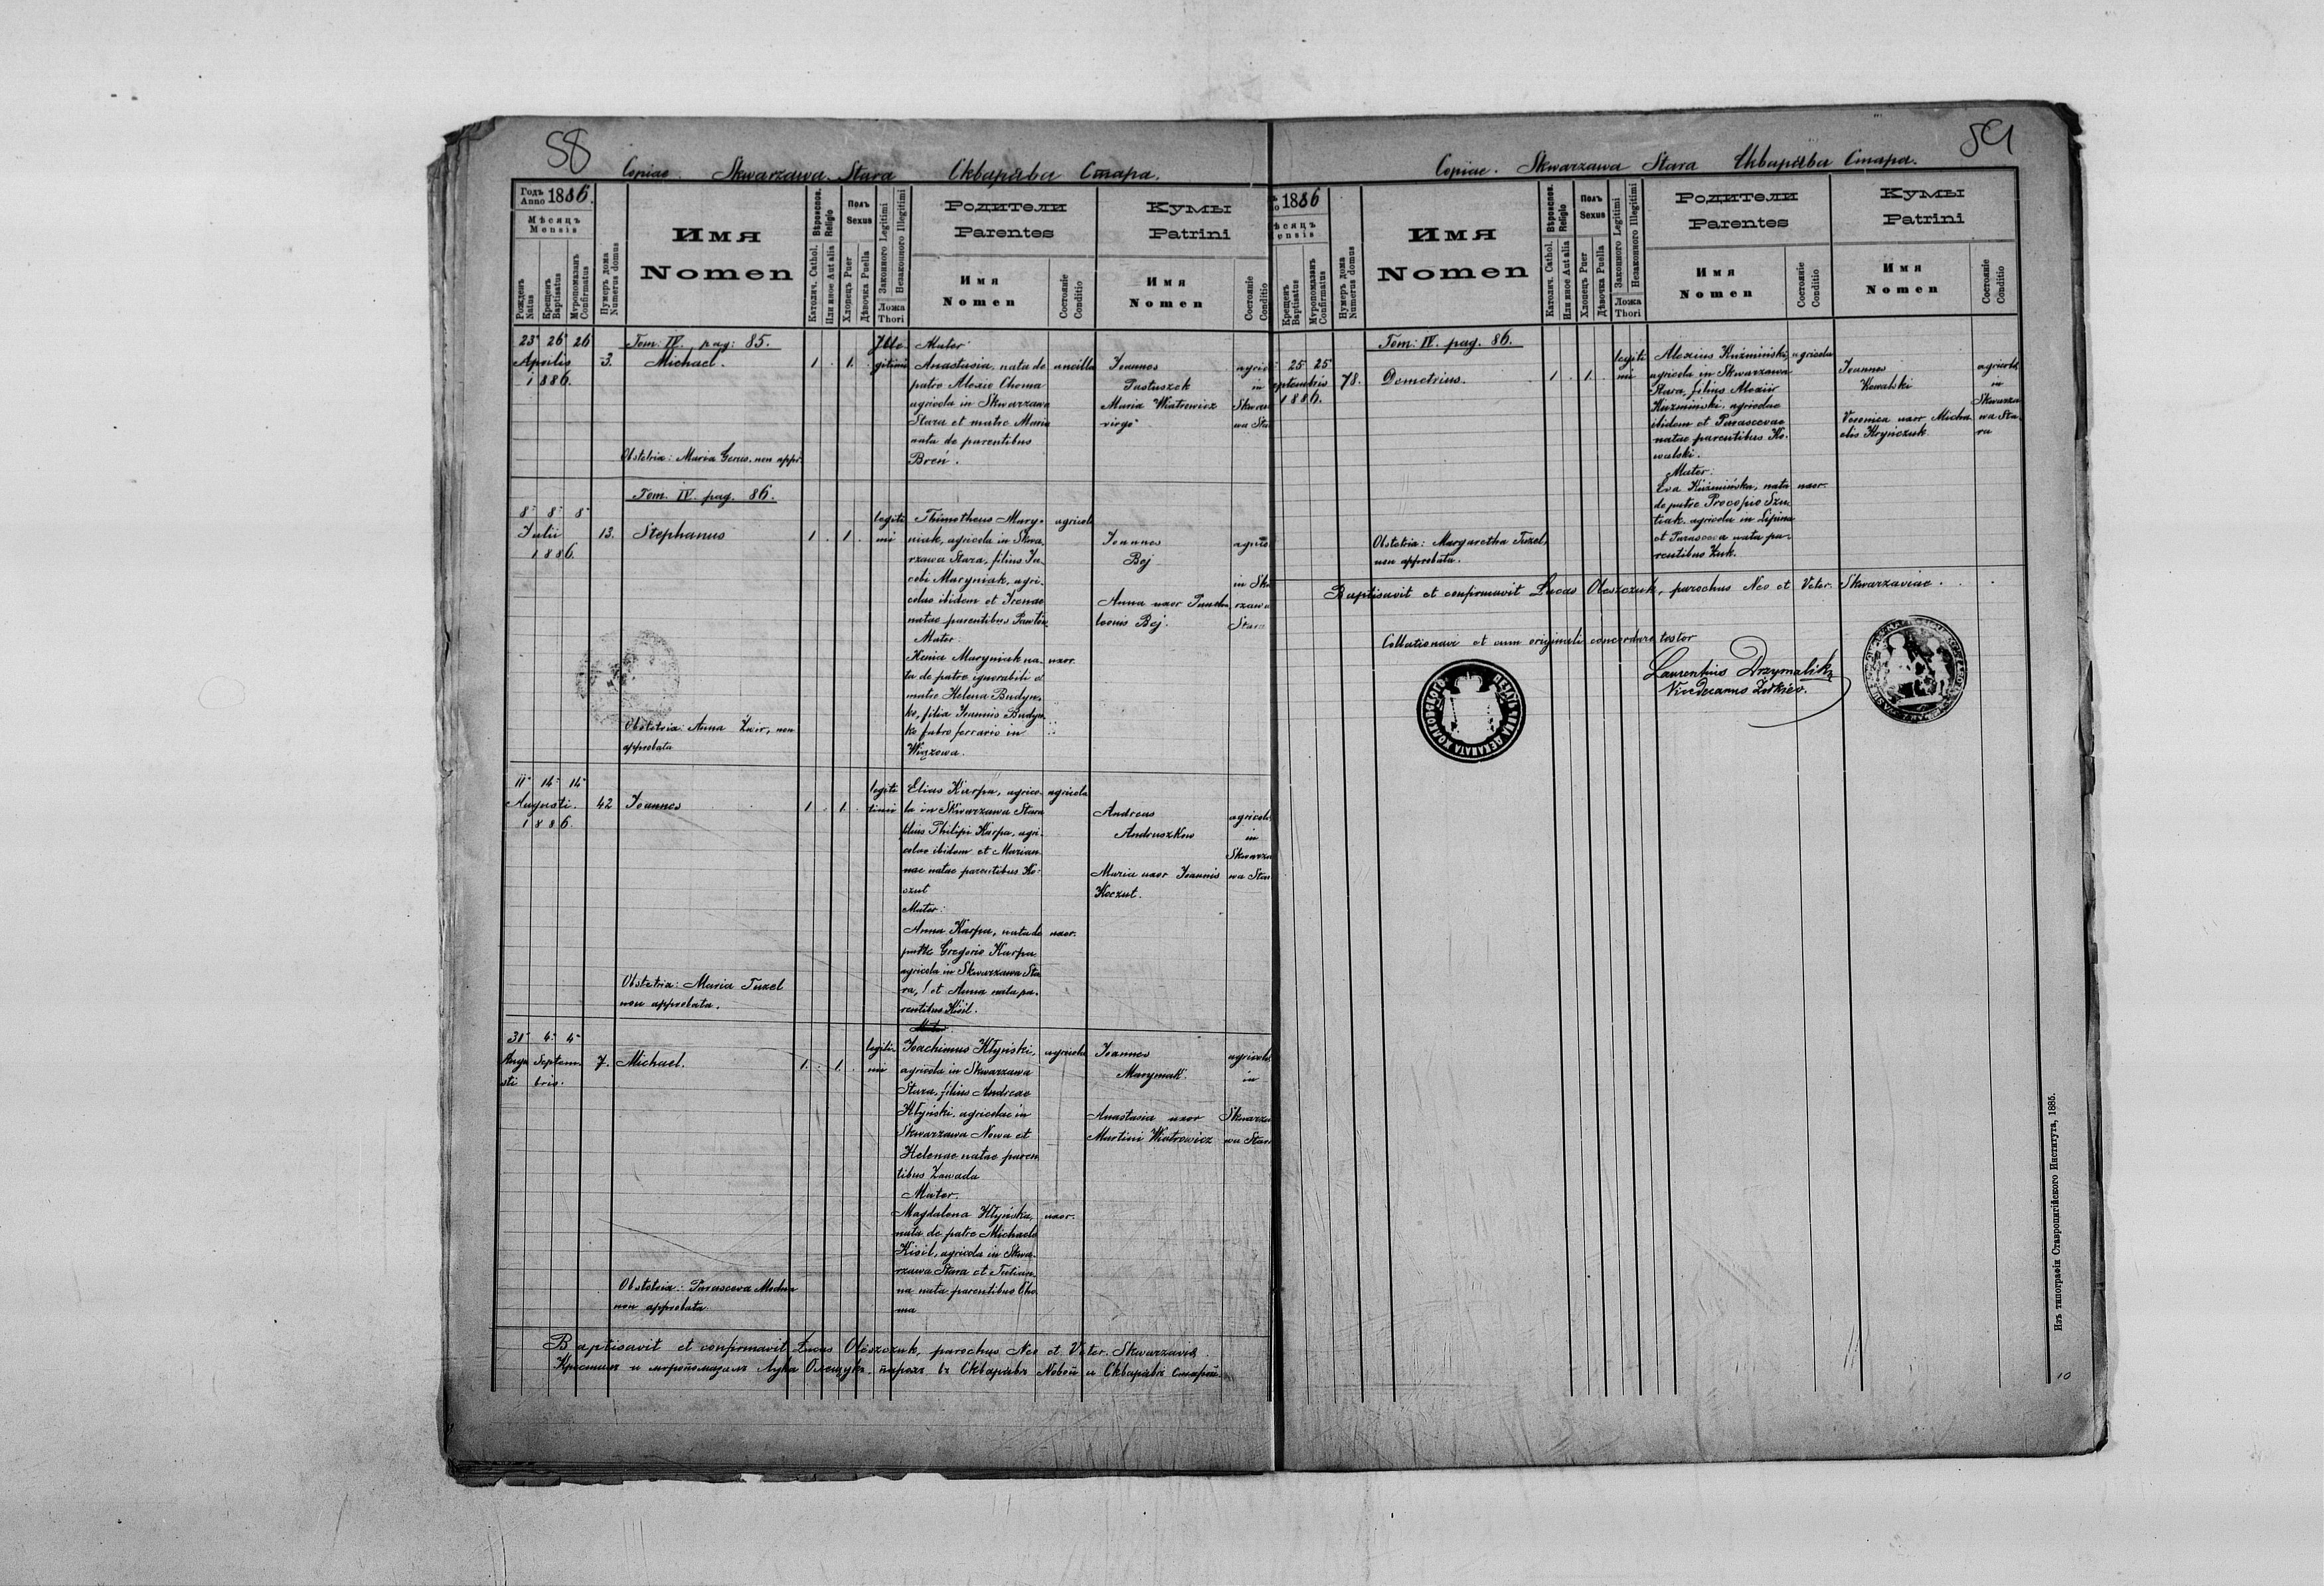 58
Copiae. Skwarzawa Stara Скварява Стара.
Годъ Anno 1886.
Мѣсяцъ
Mensis
Рожденъ Natus
Крещенъ Baptisatus
Мѵропомазанъ Confirmatus
Нумеръ дома Numerus domus
Имя
Nomen
Вѣроиспов. Religio
Католич. Cathol.
Или иное Aut alia
Полъ
Sexus
Хлопецъ Puer
Дѣвочка Puella
Законного Legitimi
Незаконного Illegitimi
Ложа
Thori
Родители
Parentes
Имя
Nomen
Состояніе
Conditio
Кумы
Patrini
Имя
Nomen
Состояніе
Conditio
23 26 26
Aprilis
1886.
3.
Tom: IV. pag: 85.
Michael.
1 . 1 .
Ille
gitimi
Mater
Anastasia, nata de
patre Alexio Choma
agricola in Skwarzawa
Stara et matre Maria
nata de parentibus
Breń.
ancilla
Joannes
Pastuszek
Maria Wiatrowicz
virgo
agric
in
Skwarz
wa Sta
Obstetrix: Maria Gerus, non appr.
Tom. IV. pag. 86.
8 8 8
Julii
1886.
13.
Stephanus
1 . 1 .
legiti
mi
Thimotheus Mary-
niak, agricola in Skwa-
rzawa Stara, filius Ja-
cobi Maryniak, agri-
colae ibidem et Irenae
natae parentibus Pawlów
Mater:
Xenia Maryniak na-
ta de patre ignorabili et
matre Helena Budyn-
ko, filia Joannis Budyn-
ko fabro ferrario in
Wiązowa.
agricola
uxor.
Joannes
Bej
Anna uxor Pante-
leonis Bej.
agric
in Sk
rzawa
Stara
Obstetrix: Anna Zair, non
approbata
11 14 14
Augusti.
1886.
42
Joannes
1 . 1 .
legiti
timi
Elias Karpa, agrico-
la in Skwarzawa Stara
filius Philipi Karpa, agri-
colae ibidem et Marian-
nae natae parentibus Ko-
czut
Mater:
Anna Karpa, nata de
patre Gregorio Karpa
agricola in Skwarzawa Sta
ra, et Anna nata pa-
rentibus Kisil.
agricola
uxor.
Andreas
Andruszkow
Maria uxor Joannis
Koczut.
agricola
in
Skwarza
wa Star
Obstetrix: Maria Tuzel
non approbata.
31 4 4
Augu Septem
sti bris.
7.
Michael.
1 . 1 .
legiti-
mi
Joachimus Kłyński,
agricola in Skwarzawa
Stara, filius Andreae
Kłyński, agricolae in
Skwarzawa Nowa et
Helenae natae paren
tibus Zawada
Mater.
Magdalena Kłyńska,
nata de patre Michaele
Kisil, agricola in Skwa-
rzawa Stara et Julian-
na nata parentibus Cho
ma
agricola
uxor.
Joannes
Maryniak
Anastasia uxor
Martini Wiatrowicz
agricola
in
Skwarza
wa Star
Obstetrix: Parasceva
non approbata.
Baptisavit et confirmavit Lucas Oleszczuk, parochus Neo et Veter. Skwarzaviae
Крестилъ и мѵропомазалъ Лука Олещукъ, парохъ въ Скварявѣ Новой и Скварявѣ старой
59
Copiae. Skwarzawa Stara Скварява Стара.
1886
Крещенъ Baptisatus
Мѵропомазанъ Confirmatus
Нумеръ дома Numerus domus
Имя
Nomen
Вѣроиспов. Religio
Католич. Cathol.
Или иное Aut alia
Полъ
Sexus
Хлопецъ Puer
Дѣвочка Puella
Законного Legitimi
Незаконного Illegitimi
Ложа
Thori
Родители
Parentes
Имя
Nomen
Состояніе
Conditio
Кумы
Patrini
Имя
Nomen
Состояніе
Conditio
Tom: IV. pag. 86.
25 25
eptembris
1886.
78.
Demetrius.
1 . 1 .
legiti
mi
Alexius Kuźmiński, agricola
agricola in Skwarzawa
Stara, filius Alexii
Kuźmiński, agricolae
ibidem et Parascevae
natae parentibus Ko-
walski.
Mater:
Eva Kuźmińska, nata uxor.
de patre Procopio Szu-
tiak, agricola in Lipina
et Parasceva nata pa-
rentibus Żuk.
Joannes
Kowalski
Veronica uxor Micha
elis Kryńczuk
agricola
in
Skwarza
wa Sta-
ra
Obstetrix: Margaretha Tuzel,
non approbata.
Baptisavit et confirmavit Lucas Oleszczuk, parochus Neo et Veter. Skwarzaviae.
Collationavi et cum originali concordare testor
Laurentius Drzymalik
Vicedecanus Żółkiev.
Изъ типографіи Ставропигійского Института, 1885.
10